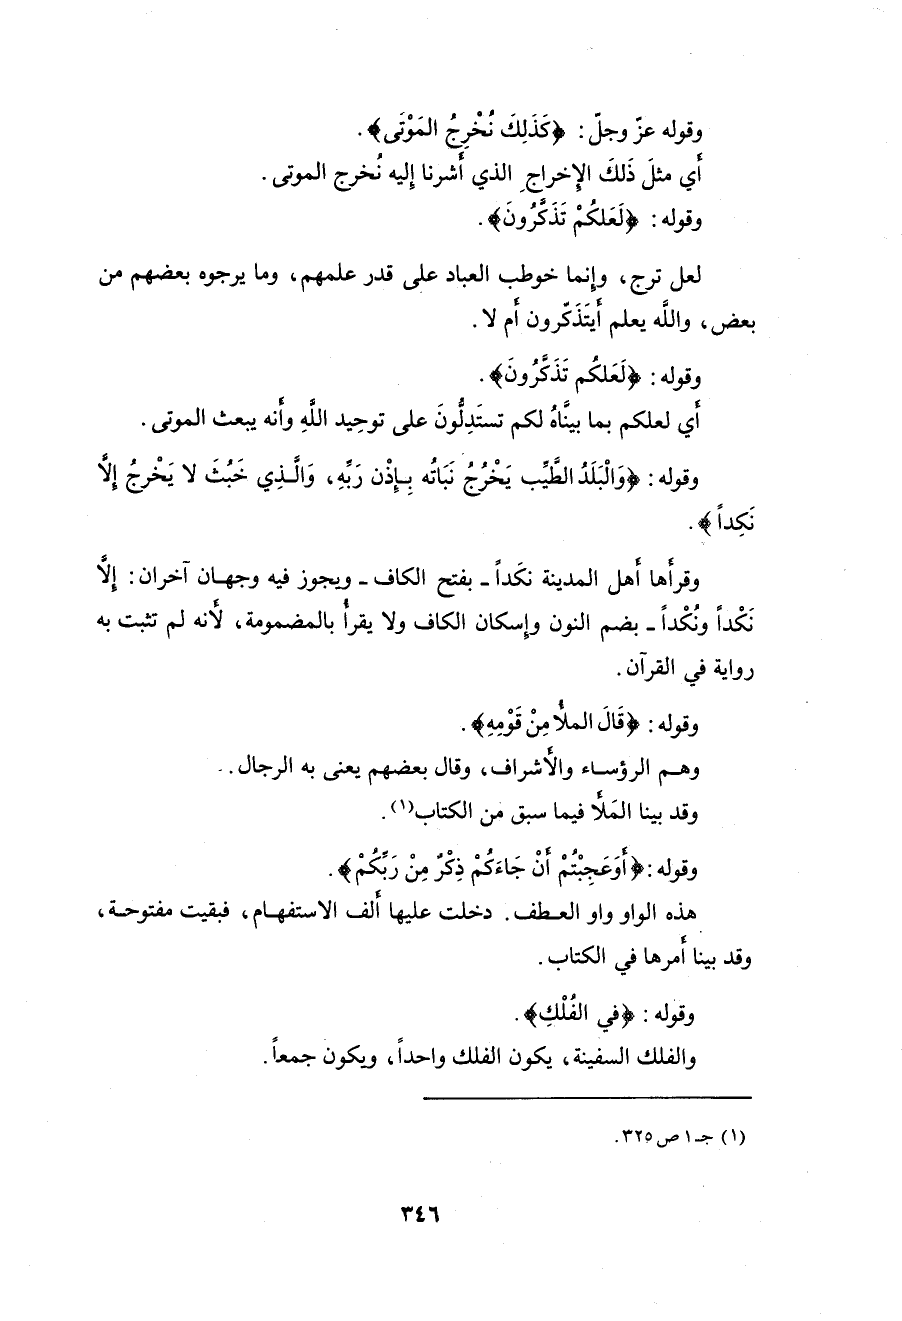 وقوله عزّ وجلّ: ﴿كَذَلِكَ نُخْرِجُ المَوْتَى﴾.
أَي مثلَ ذَلكَ الإخراجِ الذي أَشرنا إليه نُخرج الموتى.
وقوله: ﴿لَعَلكُمْ تَذَكَّرُونَ﴾.
لعل ترج، وإنما خوطب العباد على قدر علمهم، وما يرجوه بعضهم من
بعض، واللَّه يعلم أَيتَذَكّرون أَم لا.
وقوله: ﴿لَعَلكُم تَذَكَّرُونَ﴾.
أَي لعلكم بما بينَّاهُ لكم تستَدِلُّونَ على توحِيد اللَّهِ وأَنه يبعث الموتى.
وقوله: ﴿وَالْبَلَدُ الطَّيِّب يَخْرُجُ نَبَاتُه بِإِذْن رَبِّهِ، وَالَّذِي خَبُثَ لا يَخْرجُ إلاَّ
نَكِداً﴾.
وقرأَها أَهل المدينة نكَداً ـ بفتح الكاف ـ ويجوز فيه وجهان آخران: إلاَّ
نَكْداً ونُكْداً ـ بضم النون وإسكان الكاف ولا يقرأُ بالمضمومة، لأَنه لم تثبت به
رواية في القرآن.
وقوله: ﴿قَالَ الملأُ مِنْ قَوْمِهِ﴾.
وهم الرؤساء والأَشراف، وقال بعضهم يعنى به الرجال..
وقد بينا المَلَأ فيما سبق من الكتاب(١).
وقوله: ﴿أَوَعَجِبْتُمْ أَنْ جَاءَكُمْ ذِكْرٌ مِنْ رَبِّكُمْ﴾.
هذه الواو واو العطف. دخلت عليها أَلف الاستفهام، فبقيت مفتوحة،
وقد بينا أَمرها في الكتاب.
وقوله: ﴿في الفُلْكِ﴾.
والفلك السفينة، يكون الفلك واحداً، ويكون جمعاً.
(١) جـ ١ ص ٣٢٥.
٣٤٦